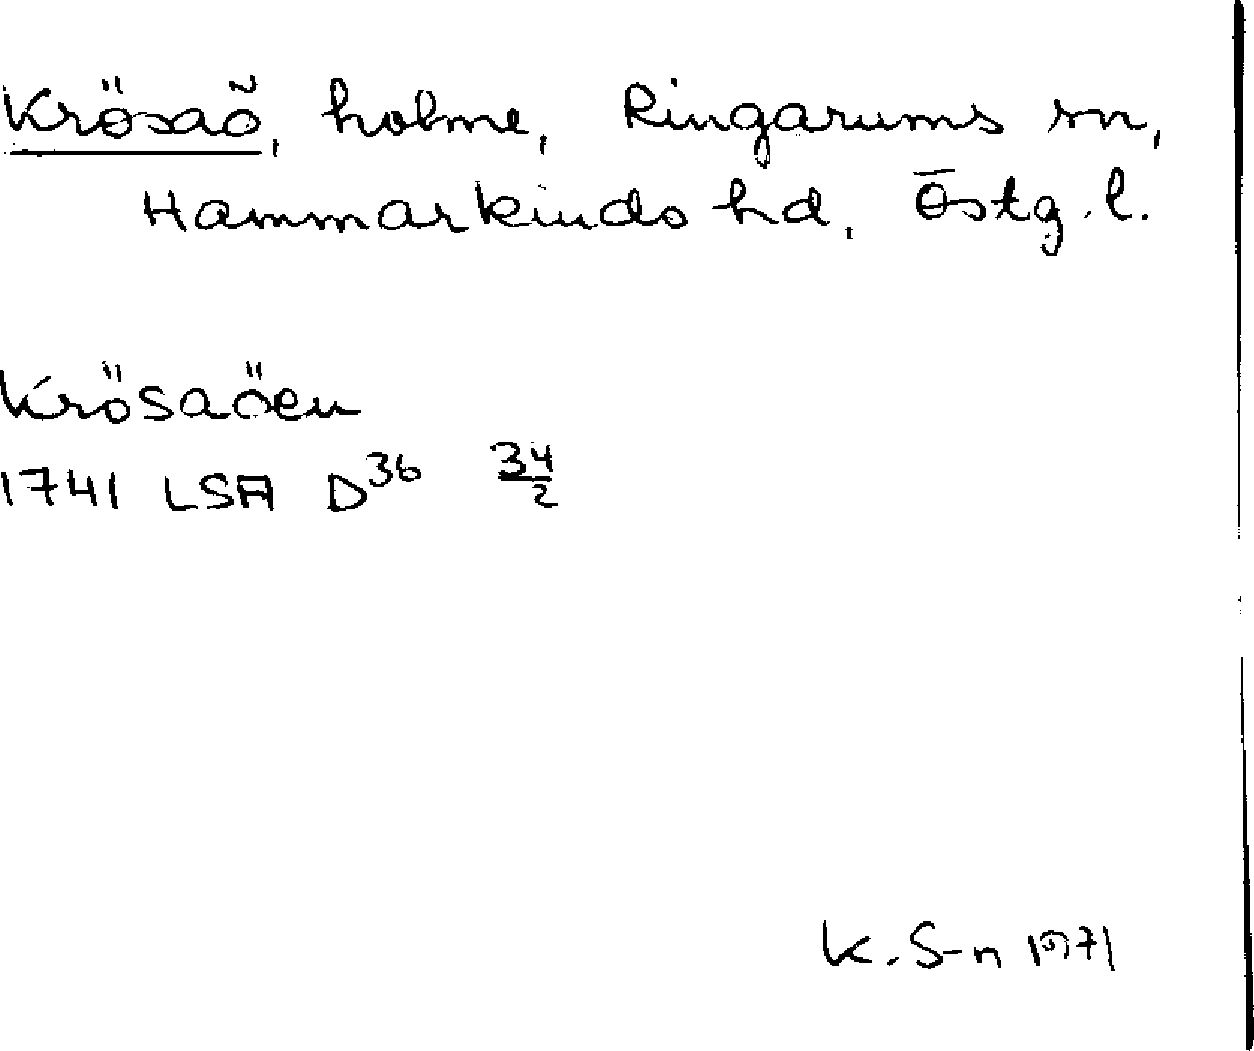 Krösaö, holme, Ringarums sn,
Hammarkinds hd, Östg.l.
Krösaöen
1741 LSA D36 34/2
K. S-n 1971